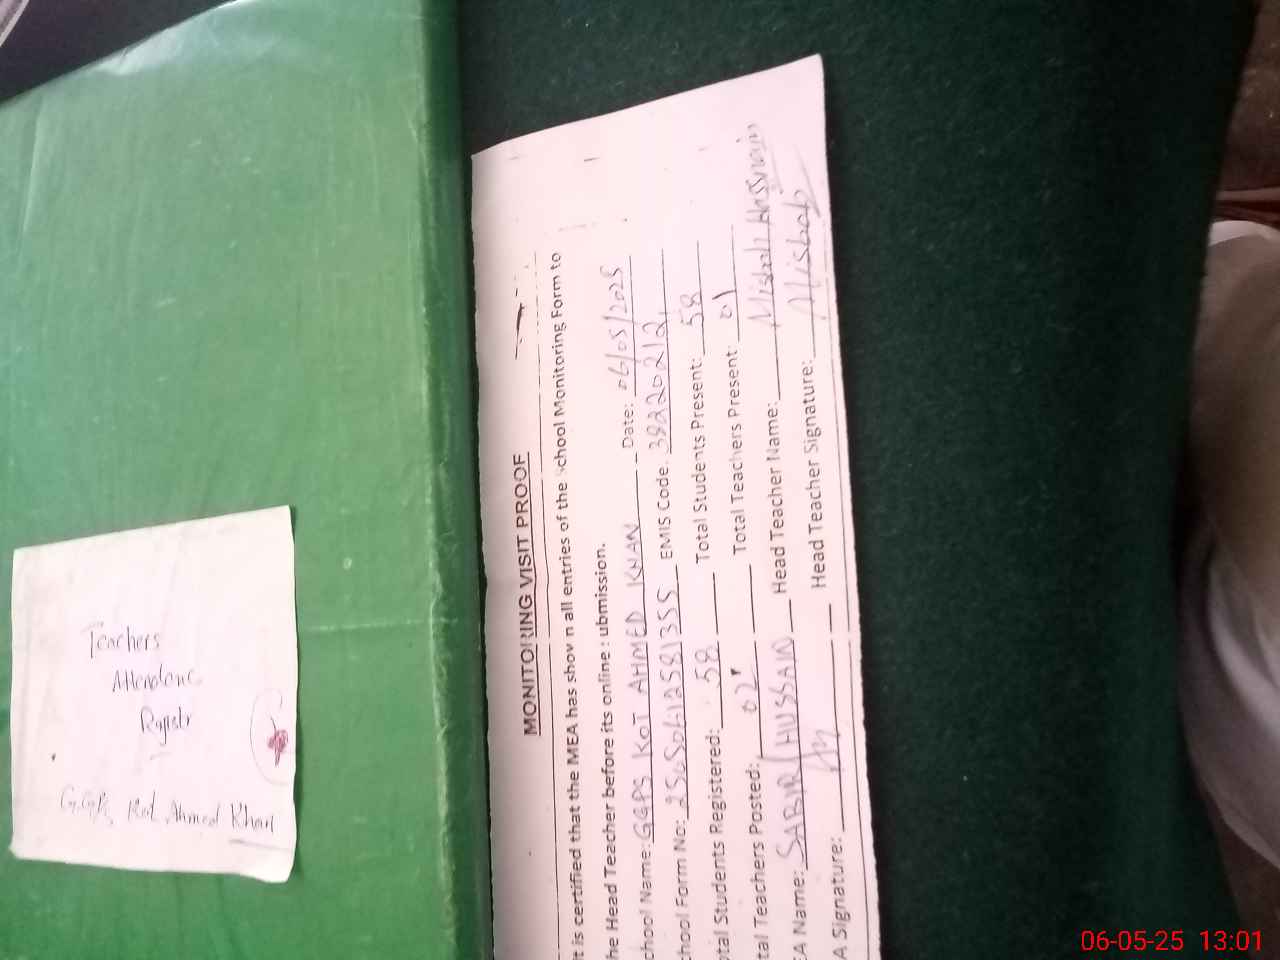 Teachers
Attendanc
Registr
G.G.P.S Kot Ahmed Khan
MONITORING VISIT PROOF
It is certified that the MEA has shown all entries of the School Monitoring Form to
he Head Teacher before its online submission.
chool Name: GGPS KOT AHMED KHAN Date: 06/05/2025
chool Form No: 25050612581355 EMIS Code. 38220212
otal Students Registered: 58 Total Students Present: 58
tal Teachers Posted: 02 Total Teachers Present: 01
EA Name: SABIR HUSSAIN Head Teacher Name: Misbah Hasnain
A Signature: Head Teacher Signature: Misbah
06-05-25 13:01